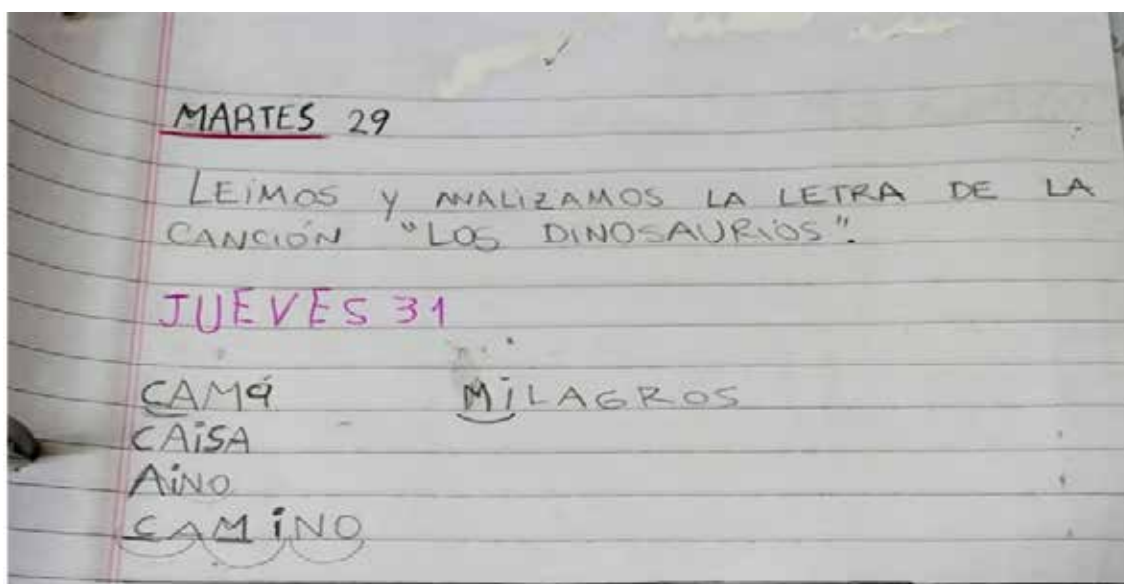 MARTES 29
LEIMOS Y ANALIZAMOS LA LETRA DE LA
CANCIÓN "LOS DINOSAURIOS".
JUEVES 31
CAMa MiLAGROS
CAiSA
AiNO
CAMiNO